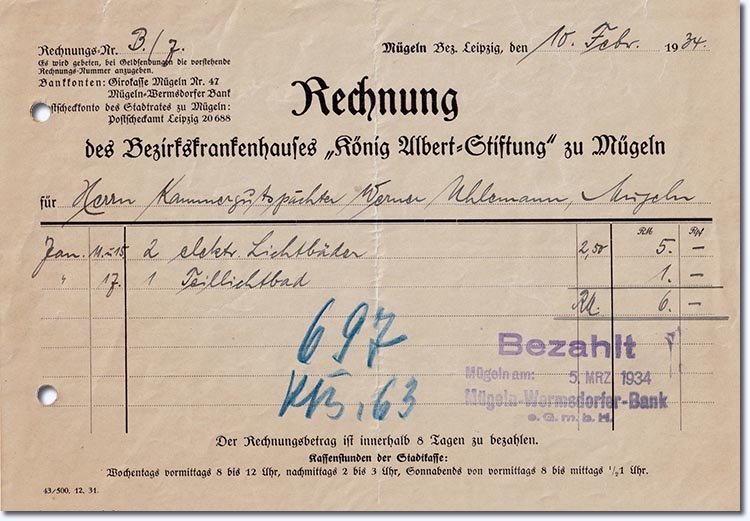 Rechnungs-Nr. B/7.
Es wird gebeten, bei Geldsendungen die vorstehende
Rechnungs-Nummer anzugeben.
Bankkonten: Girokasse Mügeln Nr. 47
Mügeln-Wermsdorfer Bank
Postscheckkonto des Stadtrates zu Mügeln:
Postscheckamt Leipzig 20 688
Mügeln Bez. Leipzig, den 10. Febr. 1934.
Rechnung
des Bezirkskrankenhauses „König Albert-Stiftung" zu Mügeln
für Herrn Kammergutspächter Werner Uhlemann, Mügeln
RM Rpf
Jan. 11. u 15. 2 elektr. Lichtbäder 2,50 5. –
" 17. 1 Teillichtbad 1. –
RM. 6. –
697
63
Bezahlt
Mügeln am: 5. MRZ. 1934
Mügeln-Wermsdorfer-Bank
e. G. m. b. H.
Der Rechnungsbetrag ist innerhalb 8 Tagen zu bezahlen.
Kassenstunden der Stadtkasse:
Wochentags vormittags 8 bis 12 Uhr, nachmittags 2 bis 3 Uhr, Sonnabends von vormittags 8 bis mittags ½1 Uhr.
43/500. 12. 31.